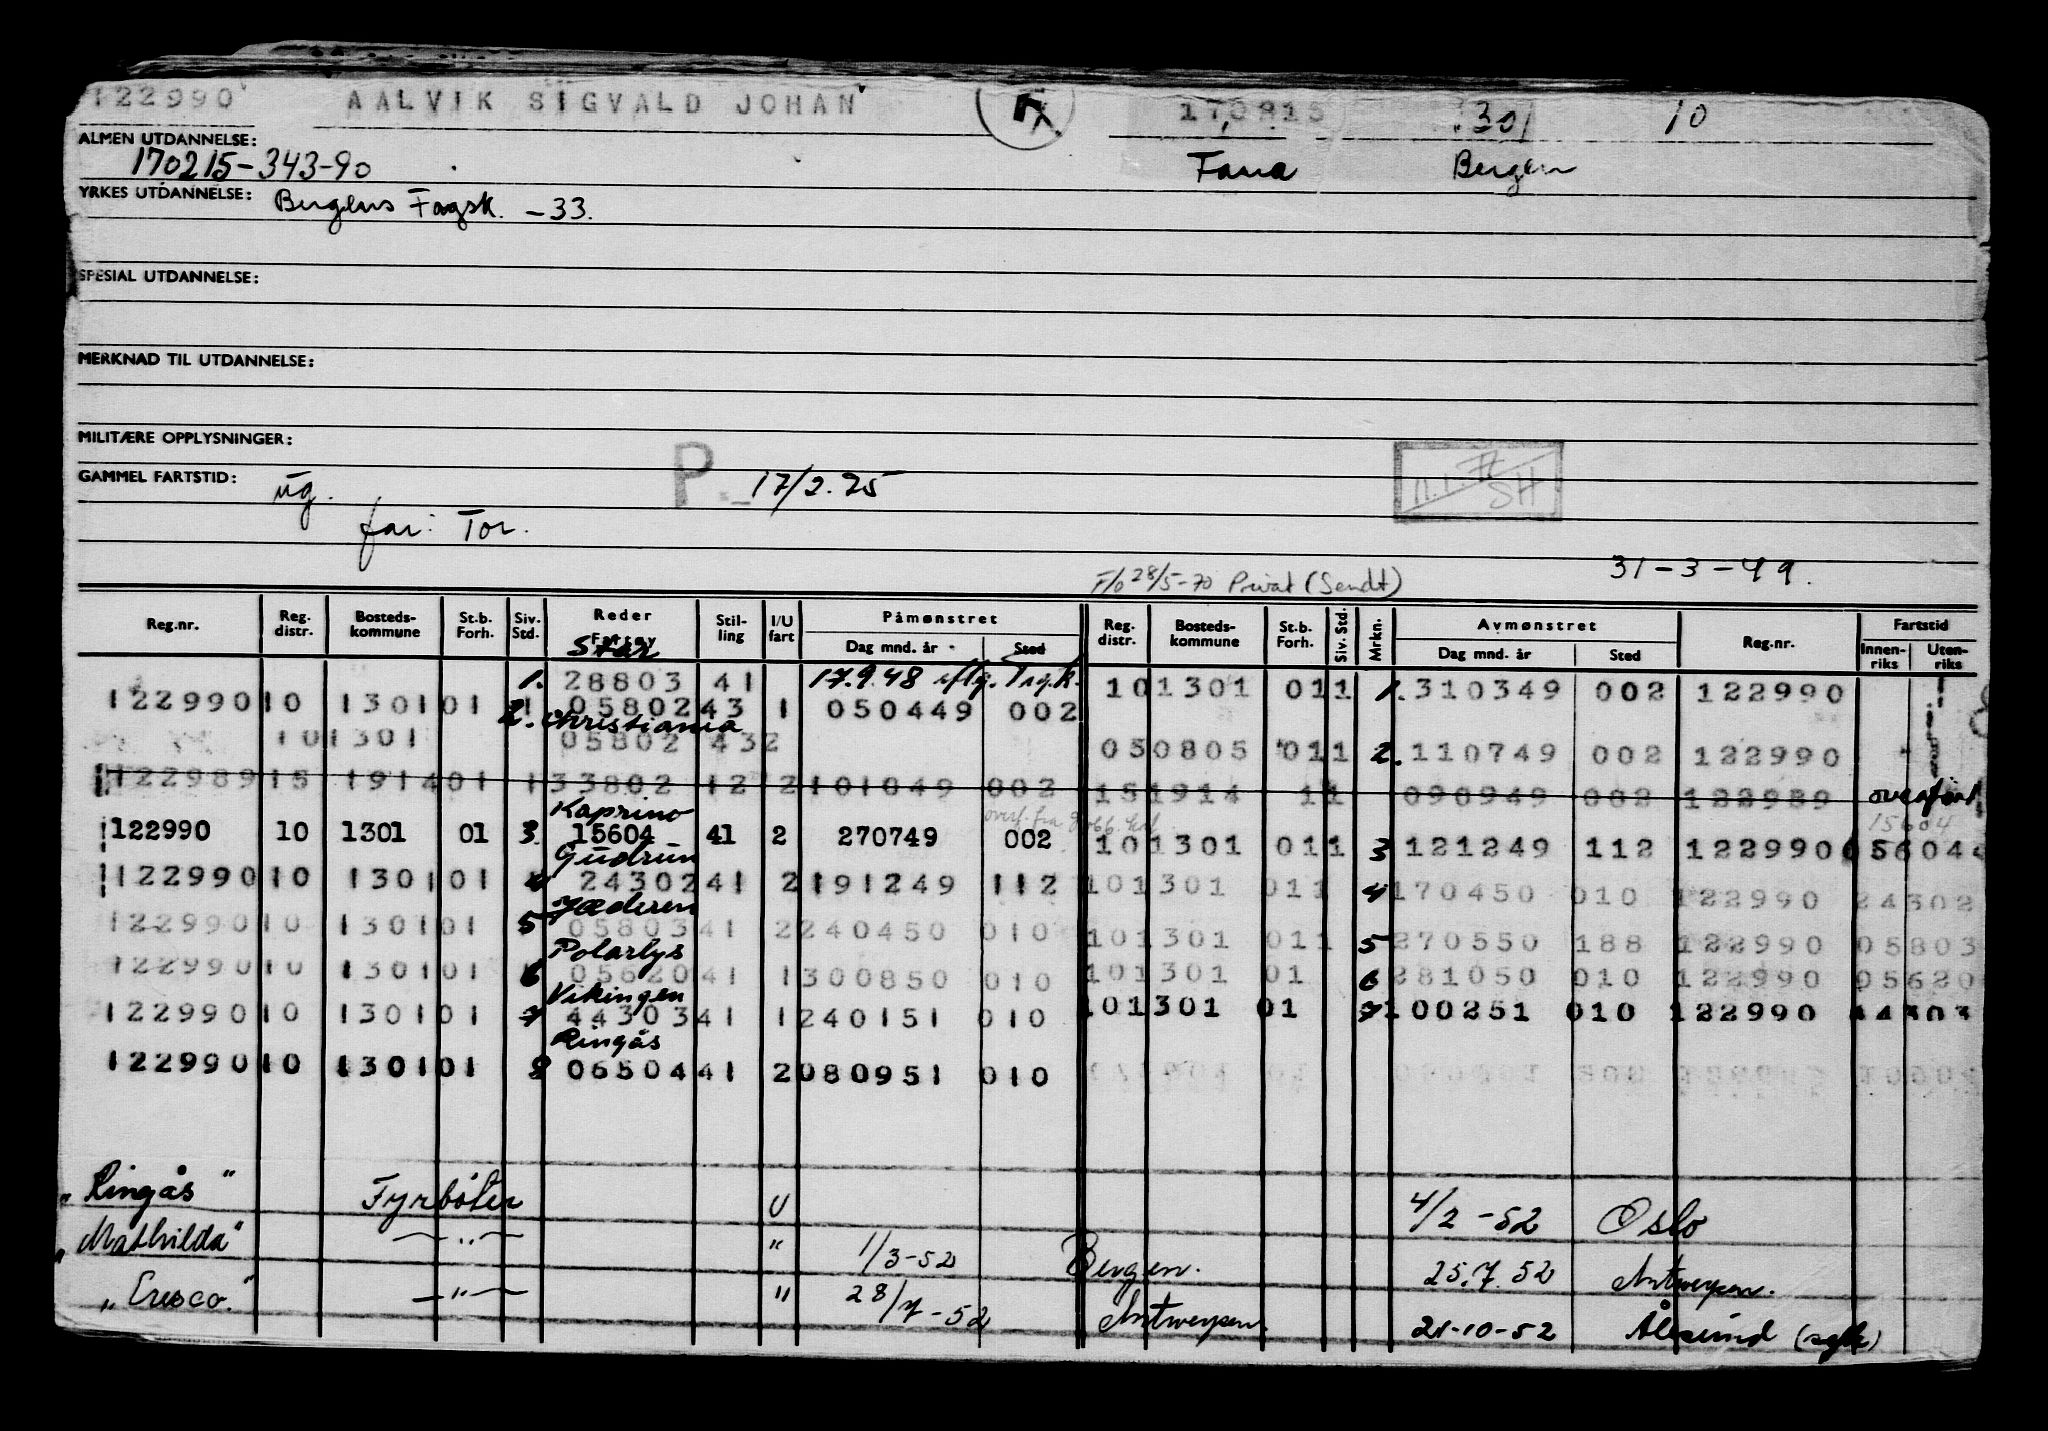 122990 AALVIK SIGVALD JOHAN 170215 .301 10
ALMEN UTDANNELSE:
170215-343-90 Fana Bergen
YRKES UTDANNELSE: Bergens Fagsk. -33.
SPESIAL UTDANNELSE:
MERKNAD TIL UTDANNELSE:
MILITÆRE OPPLYSNINGER:
GAMMEL FARTSTID: ug. P. 17/2.75 SH
far: Tor.
31-3-49.
F/o 28/5-70 Privat (Sendt)
Reg.nr. Reg. distr. Bosteds-kommune St.b. Forh. Siv. Std. Reder Stil-ling I/U fart Påmønstret Dag mnd. år Sted Reg. distr. Bosteds-kommune St.b. Forh. Siv. Std. Mrkn. Avmønstret Dag mnd. år Sted Reg.nr. Fartstid Innen-riks Uten-riks
Star
1. 28803 41 17.9.48 101301 011 1. 310349 002 122990
122990 10 1301 01 1 05802 43 1 050449 002
2. Christiania
101301 05802 432 050805 011 2. 110749 002 122990
122989 15 1914 01 1 33802 12 2 101049 002 151914 11 090949 002 122989 overført
Kaprino 15604
122990 10 1301 01 3. 15604 41 2 270749 002 101301 011 3 121249 112 122990 15604
Gudrun
122990 10 1301 01 4 24302 41 2 191249 112 101301 011 4 170450 010 122990 24302
Jæderen
122990 10 1301 01 5 05803 41 2 240450 010 101301 011 5 270550 188 122990 05803
Polarlys
122990 10 1301 01 6 05620 41 1 300850 010 101301 01 6 281050 010 122990 05620
Vikingen
122990 10 1301 01 7 44303 41 1 240151 010 101301 01 7 100251 010 122990 44303
Ringås
122990 10 1301 01 8 06504 41 2 080951 010
"Ringås" Fyrbøter U 4/2-52 Oslo
"Mathilda" —"— " 1/3-52 Bergen. 25.7.52 Antwerpen.
"Cresco." —"— " 28/7-52 Antwerpen. 21-10-52 Ålesund